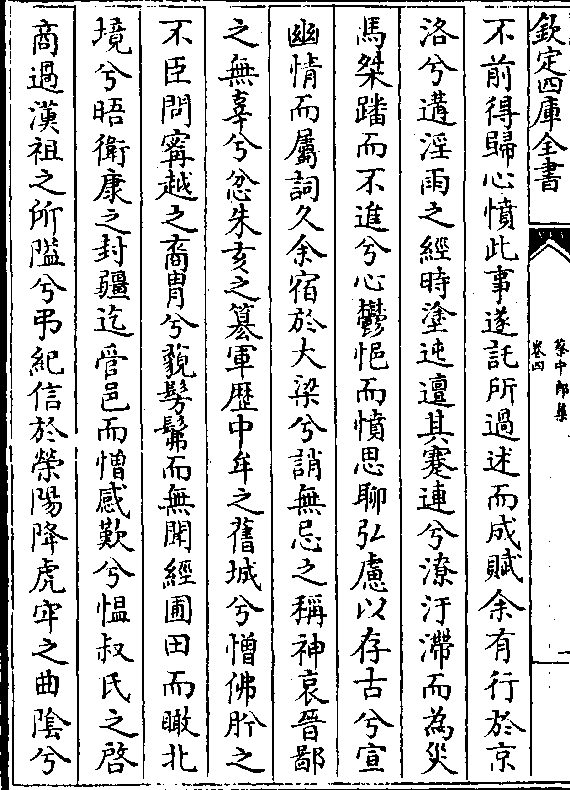 欽定四庫全書
蔡中郎集
卷四
不前得歸心憤此事遂託所過述而成賦余有行於京
洛兮遘淫雨之經時塗迍邅其蹇連兮潦汙滯而為災
馬桀蹯而不進兮心鬱悒而憤思聊弘慮以存古兮宣
幽情而屬詞久余宿於大梁兮誚無忌之稱神哀晉鄙
之無辜兮忿朱亥之簒軍歴中牟之舊城兮憎佛肸之
不臣問寗越之裔胄兮藐髣髴而無聞經圃田而瞰北
境兮晤衛康之封疆迄管邑而憎感歎兮愠叔氏之啓
商過漢祖之所隘兮弔紀信於滎陽降虎牢之曲陰兮